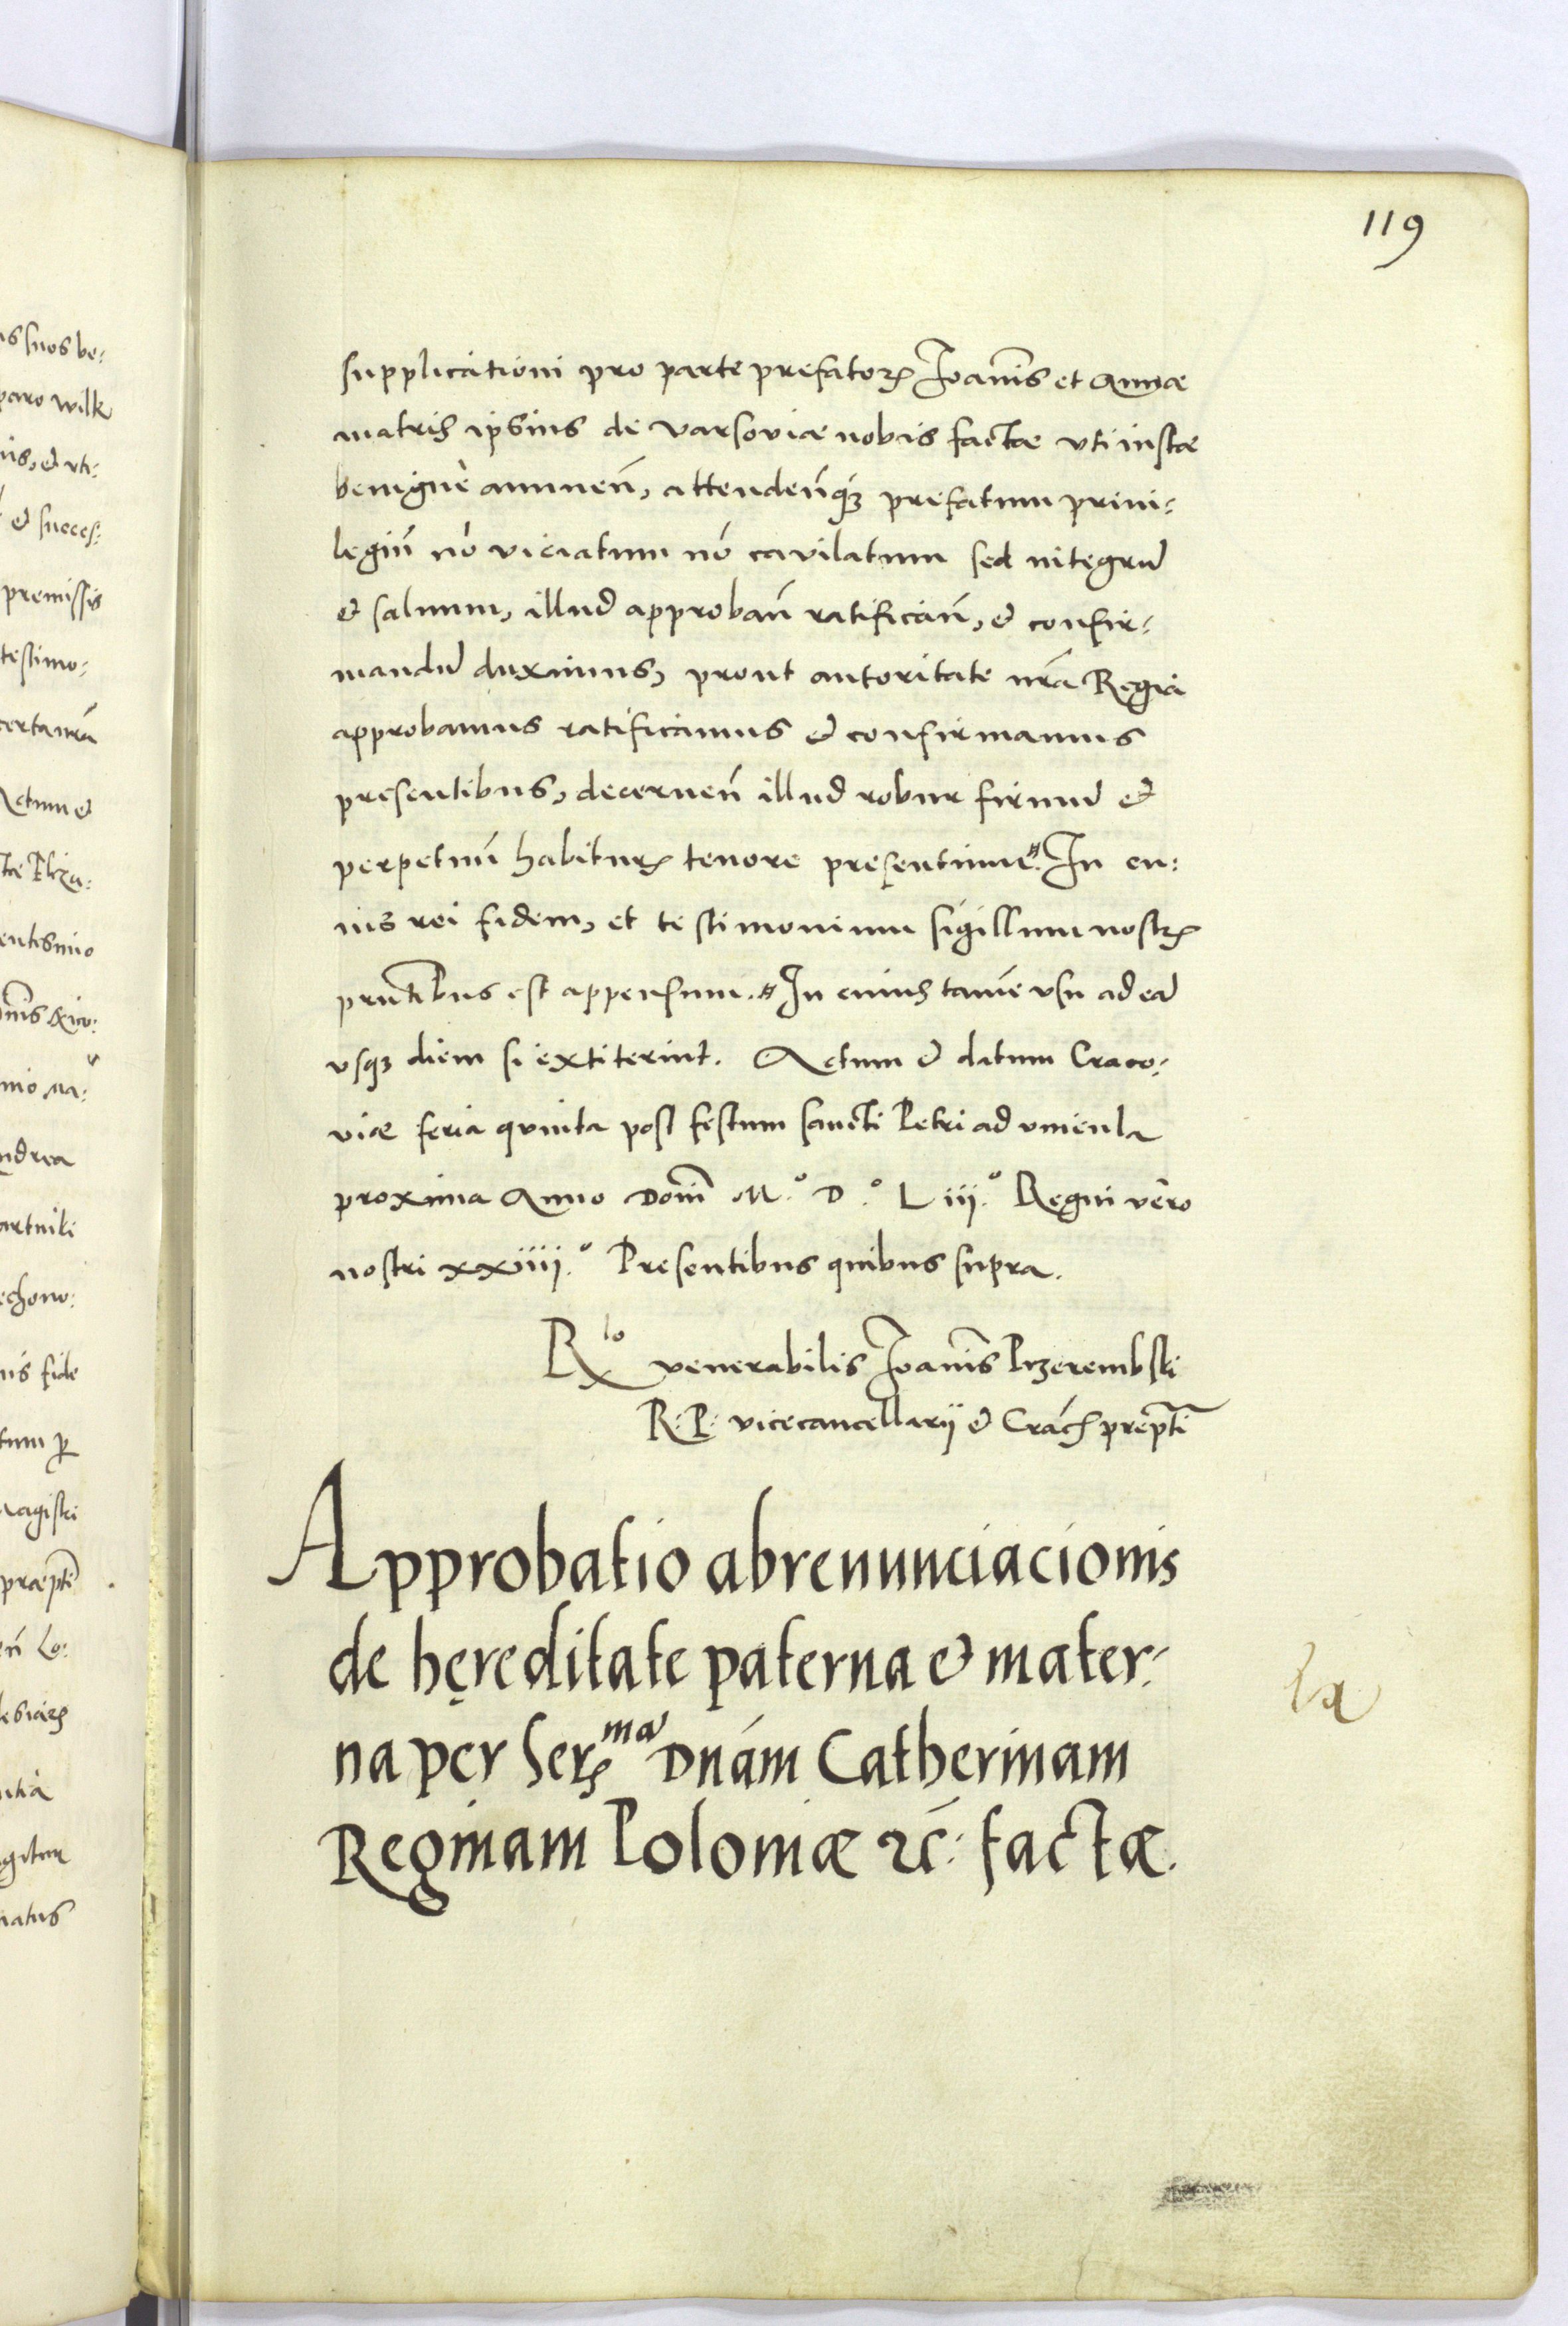 119
supplicationi pro parte prefatoꝝ Ioan̄is et Annæ
matris ipsius de varsoviæ nobis factæ uti iustæ
benigne annuen̄, attenden̄qꝫ prefatum privi-
legiū nō viciatum nō cavilatum sed integrū
et salvum, illud approban̄ ratifican̄, et confir-
mandū duximus, prout autoritate nr̄a Regia
approbamus ratificamus et confirmamus
presentibus, decernen̄ illud robur firmū et
perpetuū habituꝝ tenore presentium. In cu:
ius rei fidem, et testimonium sigillum nostꝝ
prn̄tibus est appensum. In cuius tamē usu ad eā
vsqꝫ diem si extiterint. Actum et datum Craco:
viæ feria quinta post festum sancti Petri ad vincula
proxima Anno Domī M.º D.º Liii.º Regni vero
nostri xxiiii.º Presentibus quibus supra.
Rlo venerabilis Ioan̄is Przerembski
R: P: vicecancellarij et Crac̄ prep̄ti
Approbatio abrenunciacionis
de hęreditate paterna et mater:
na per Serma Dnām Catherinam
Reginam Poloniæ ꝛc̄: factæ.
us suos be:
paro wilk
nis, et uti:
et succes:
premissis
testimo:
Actum et
entissimo
nio Ma:
andrea
echono:
nis fide
tum ꝑ
præpti
en̄ Lo:
natus